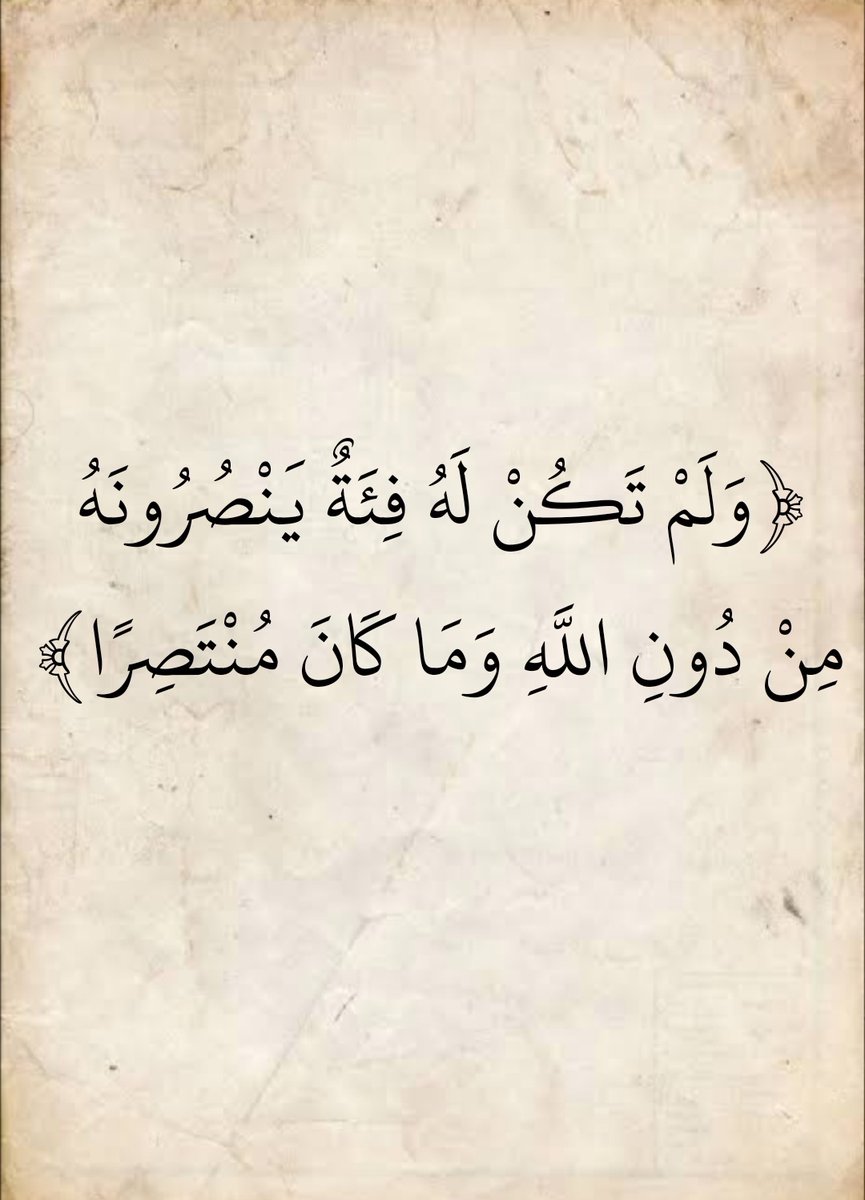 ﴿وَلَمْ تَكُنْ لَهُ فِئَةٌ يَنْصُرُونَهُ
مِنْ دُونِ اللَّهِ وَمَا كَانَ مُنْتَصِرًا﴾